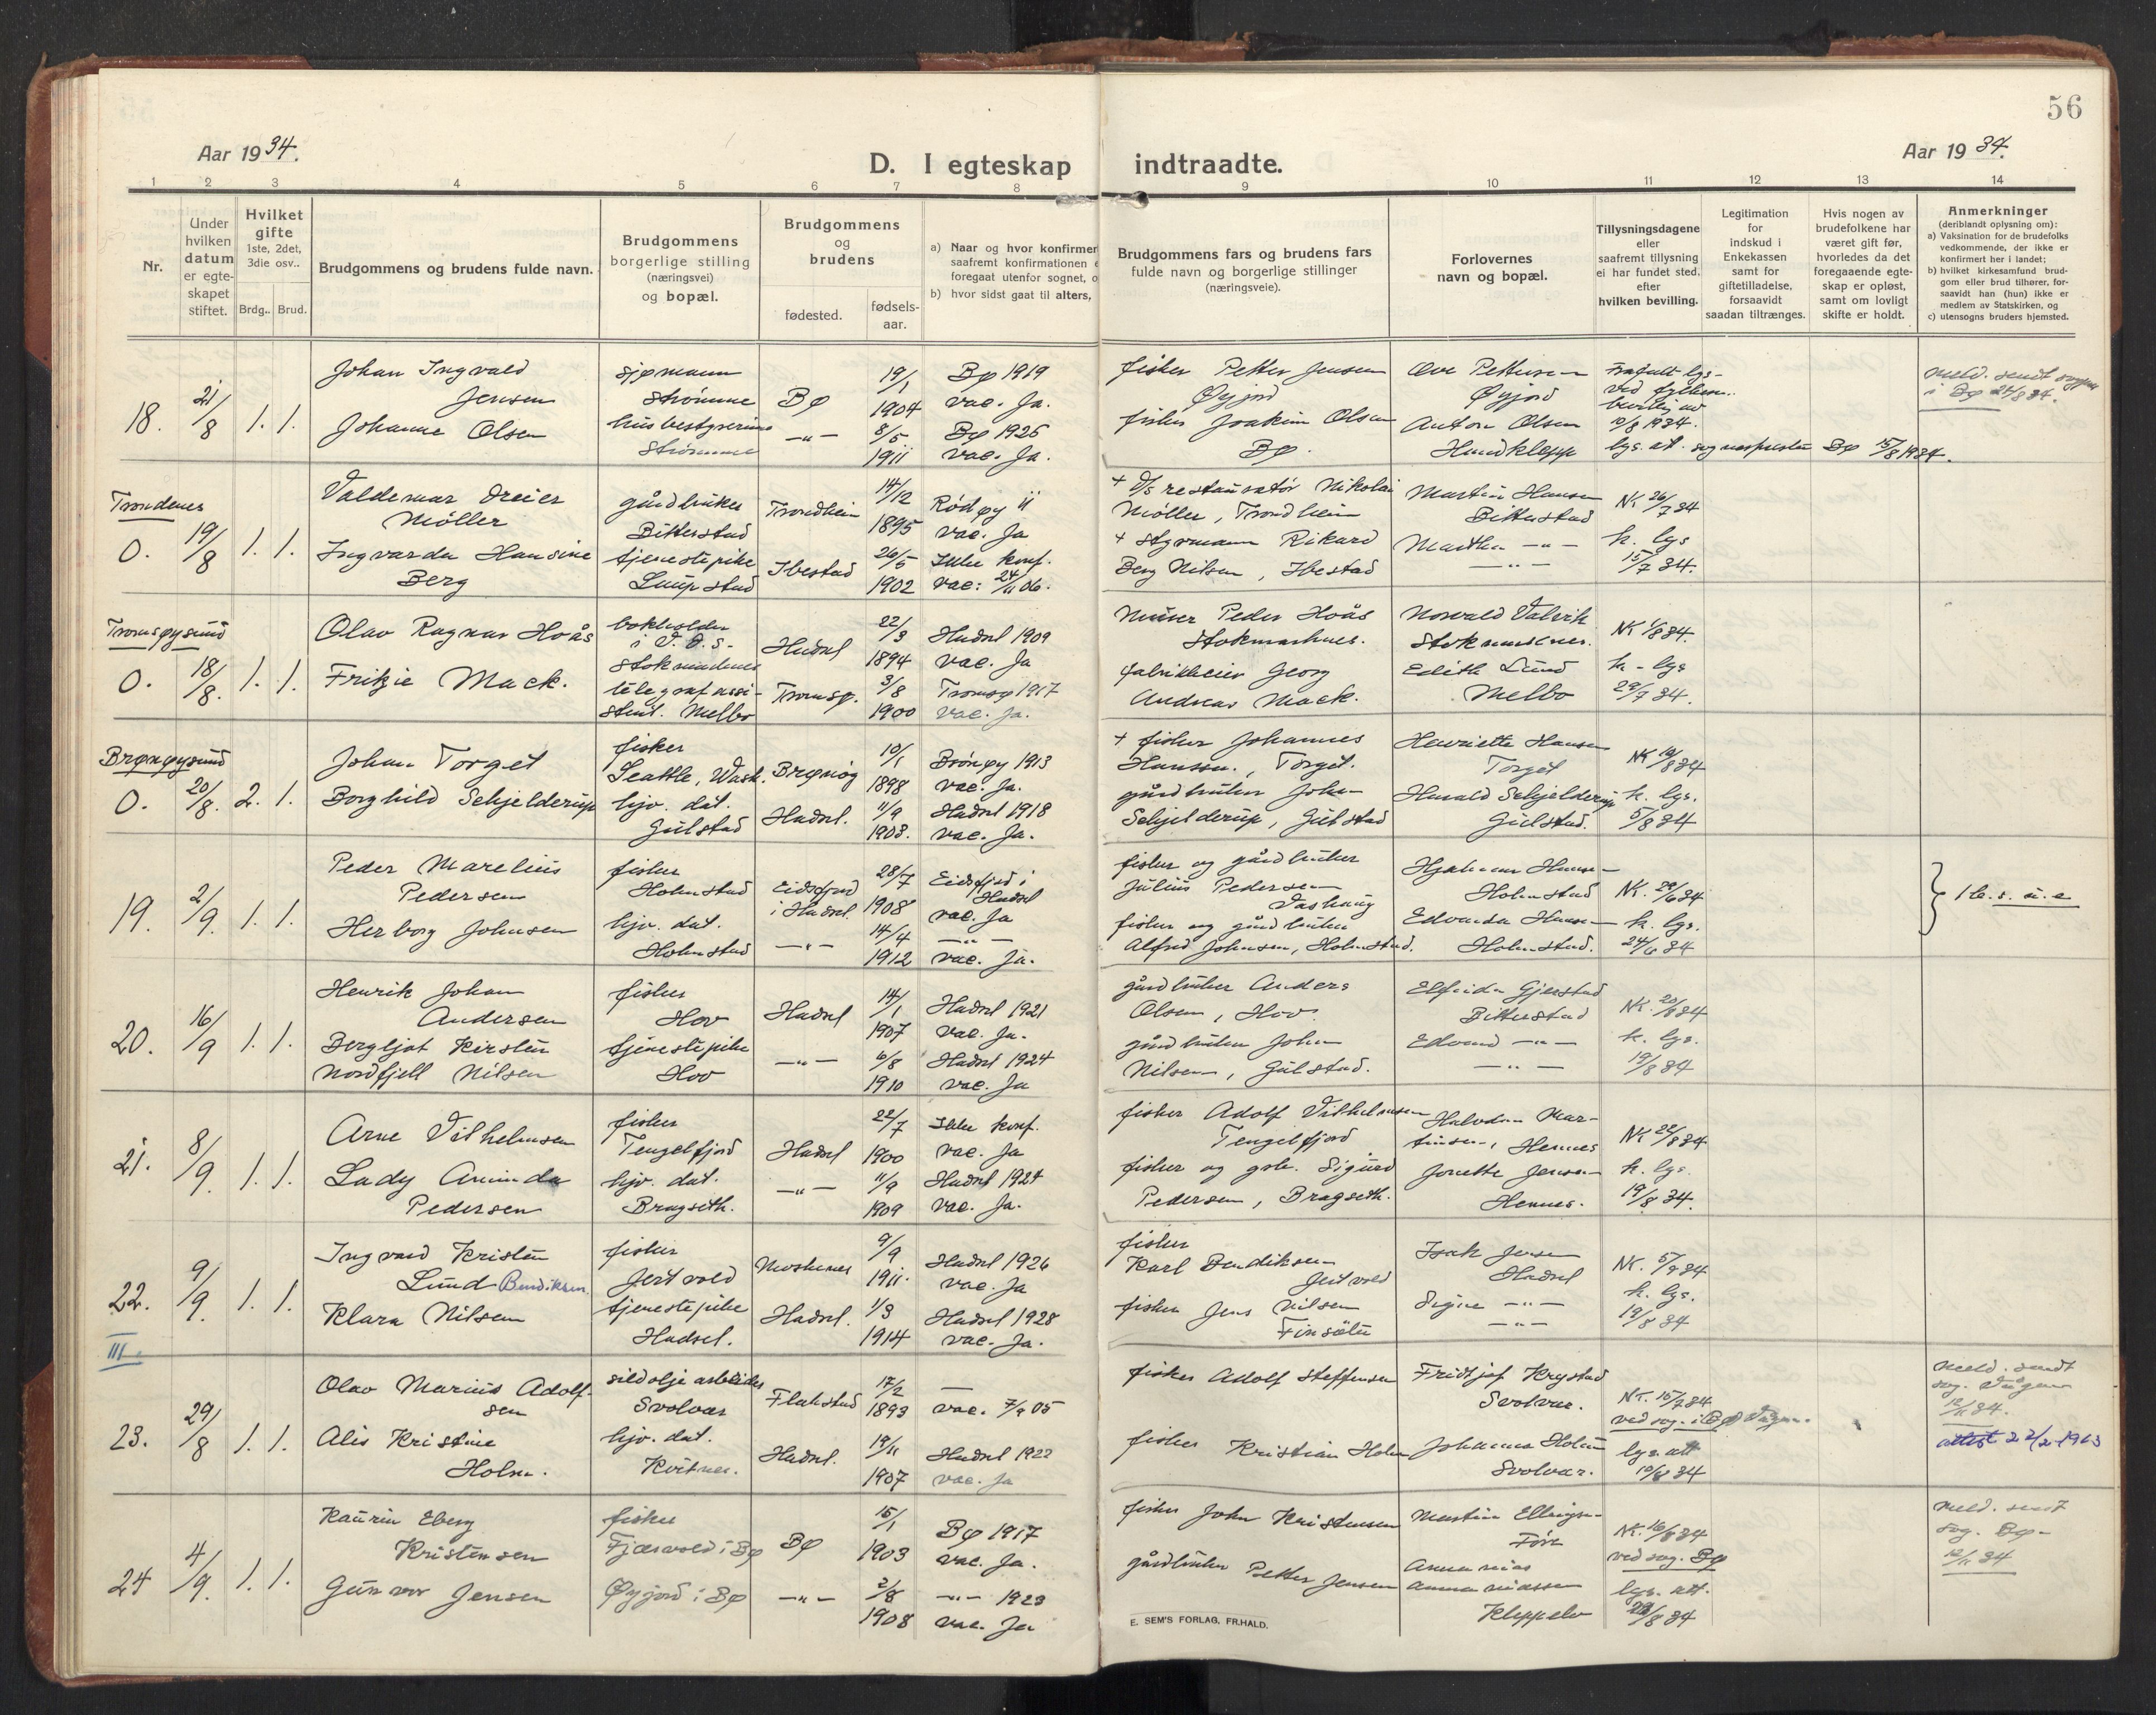 56
Aar 1934.
D. I egteskap indtraadte.
Aar 1934.
1 2 3 4 5 6 7 8 9 10 11 12 13 14
Nr.
Under hvilken datum er egteskapet stiftet.
Hvilket gifte
1ste, 2det, 3die osv..
Brdg.. Brud.
Brudgommens og brudens fulde navn.
Brudgommens borgerlige stilling (næringsvei) og bopæl.
Brudgommens og brudens
fødested.
fødsels-aar.
a) Naar og hvor konfirmer
saafremt konfirmationen e
foregaat utenfor sognet, o
b) hvor sidst gaat til alters,
Brudgommens fars og brudens fars
fulde navn og borgerlige stillinger
(næringsveie).
Forlovernes
navn og bopæl.
Tillysningsdagene
eller
saafremt tillysning
ei har fundet sted,
efter
hvilken bevilling.
Legitimation
for
indskud i
Enkekassen
samt for
giftetilladelse,
forsaavidt
saadan tiltrænges.
Hvis nogen av
brudefolkene har
været gift før,
hvorledes da det
foregaaende egte-
skap er opløst,
samt om lovligt
skifte er holdt.
Anmerkninger
(deriblandt oplysning om):
a) Vaksination for de brudefolks
vedkommende, der ikke er
konfirmert her i landet;
b) hvilket kirkesamfund brud-
gom eller brud tilhører, for-
saavidt han (hun) ikke er
medlem av Statskirken, og
c) utensogns bruders hjemsted.
18. 21/8 1. 1.
Johan Ingvald
Jensen
Johanne Olsen
sjømann
Strømme
husbestyrerinne
Strømme
Bø
-"-
19/1
1904
8/5
1911
Bø 1919
vac. Ja.
Bø 1926
vac. Ja.
fisker Petter Jensen
Øyjord
fisker Joakim Olsen
Bø.
Ove Pettersen
Øyjord
Anton Olsen
Hundklepp
10/8 1934.
lys. at. sognepresten Bø 15/8 1934.
meld. sendt
i Bø 24/8 34.
Trondenes
0. 19/8 1. 1.
Valdemar Dreier
Møller
Ingvarda Hansine
Berg
gårdbruker
Bitterstad
tjenestepike
Laupstad
Trondheim
Ibestad
14/12
1895
26/5
1902
Rødøy 11
vac. Ja
Ikke konf.
vac: 24/11 06.
+ D/s restauratør Nikolai
Møller, Trondheim
+ Styrmann Rikard
Berg Nilsen, Ibestad
Martin Hansen
Bitterstad
Martha -"-
-"-
NK 26/7 34
k. lys
15/7 34.
Tromsøysund
0. 18/8. 1. 1.
Olav Ragnar Hoås
Frikjie Mack.
bokholder
i V. D. S.
Stokmarknes
telegrafassi-
stent. Melbo
Hadsel
Tromsø.
22/3
1894
3/8
1900
Hadsel 1909
vac. Ja
Tromsø 1917
vac. Ja.
Murer Peder Hoås
Stokmarknes.
fabrikkeier Georg
Andreas Mack.
Norvald Valvik
Stokmarknes.
Edith Lund
Melbo
NK 1/8 34.
k. lys
29/7 34.
Brønnøysund
0. 20/8. 2. 1.
Johan Torget
Borghild Schjelderup
fisker
Seattle, Wash.
hjv. dat.
Gulstad
Brønnøy
Hadsel.
10/1
1898
11/9
1903.
Brønnøy 1913
vac. Ja.
Hadsel 1918
vac. Ja.
+ fisker Johannes
Hanssen., Torget.
gårdbruker Johan
Schjelderup, Gulstad
Henriette Hansen
Torget
Harald Schjelderup
Gulstad.
k. lys.
5/8 34
19. 2/9. 1. 1.
Peder Marelius
Pedersen
Herborg Johnsen
fisker
Holmstad
hjv. dat.
Holmstad
Eidsfjord
i Hadsel.
-"-
28/7
1908
14/4
1912
Eidsfjord i
Hadsel
vac. Ja
-"-
vac. Ja.
fisker og gårdbruker
Julius Pedersen
Vashaug
fisker og gårdbruker
Alfred Johnsen, Holmstad.
Hjalmar Hansen
Holmstad
Edvarda Hansen
Holmstad.
NK. 29/6 34
k. lys.
24/6 34
20. 16/9 1. 1.
Henrik Johan
Andersen
Bergljot Kirsten
Nordfjell Nilsen
fisker
Hov
tjenestepike
Hov
Hadsel
-"-
14/1
1907
6/8
1910
Hadsel 1921
vac. Ja.
Hadsel 1924
vac. Ja
gårdbruker Anders
Olsen, Hov.
gårdbruker Johan
Nilsen, Gulstad.
Elfrida Gjerstad
Bitterstad
Edvard -"-
-"-
NK. 20/8 34
k. lys.
19/8 34
21. 8/9. 1. 1.
Arne Vilhelmsen
Lady Aminda
Pedersen
fisker
Tengelfjord
hjv. dat.
Bragseth.
Hadsel
-"-
22/7
1900
11/9
1909
Ikke konf.
vac. Ja
Hadsel 1924
vac. Ja.
fisker Adolf Vilhelmsen
Tengelfjord
fisker og gbr. Sigurd
Pedersen, Bragseth.
Halvdan Mar-
tinsen, Hennes
Jonette Jensen
Hennes.
NK 22/8 34
k. lys.
19/8 34.
22. 9/9. 1. 1.
Ingvard Kristen
Lund Bendiksen.
Klara Nilsen
fisker
Jertvold
tjenestepike
Hadsel.
Moskenes
Hadsel.
9/9
1911.
1/3
1914
Hadsel 1926
vac. Ja
Hadsel 1928
vac. Ja.
fisker
Karl Bendiksen
Jertvold
fisker Jens Nilsen
Finsæter
Isak Jensen
Hadsel
Signe -"-
-"-
NK. 5/9 34
k. lys.
19/8 34
III
23. 29/8 1. 1.
Olav Marius Adolf-
sen
Alis Kristine
Holm.
sildoljearbeider
Svolvær
hjv. dat.
Kvitnes.
Flakstad
Hadsel.
17/2
1893
19/11
1907
—
vac. 7/9 05
Hadsel 1922
vac. Ja
fisker Adolf Steffensen
fisker Kristian Holm
Fridtjof Krystad
Svolvær.
Johanna Holm
Svolvær.
NK. 15/7 34
lys. att
10/8 34
meld. sendt
sog. Vågan
12/11 34.
attest 22/2-1963
24 4/9. 1. 1.
Kaurin Eberg
Kristensen
Gunvor Jensen
fisker
Fjærvold i Bø
Øyjord i Bø
Bø
-"-
15/1
1903
2/8
1908
Bø 1917
vac. Ja.
-"- 1923
vac. Ja
fisker John Kristensen
gårdbruker Petter Jensen
Martin Ellingsen
Føre
Ananias
Ananiassen
Kleppelv
NK. 16/8 34
ved sog. Bø
lys. att.
meld. sendt
sog. Bø
12/11 34
E. SEM'S FORLAG, FR.HALD.